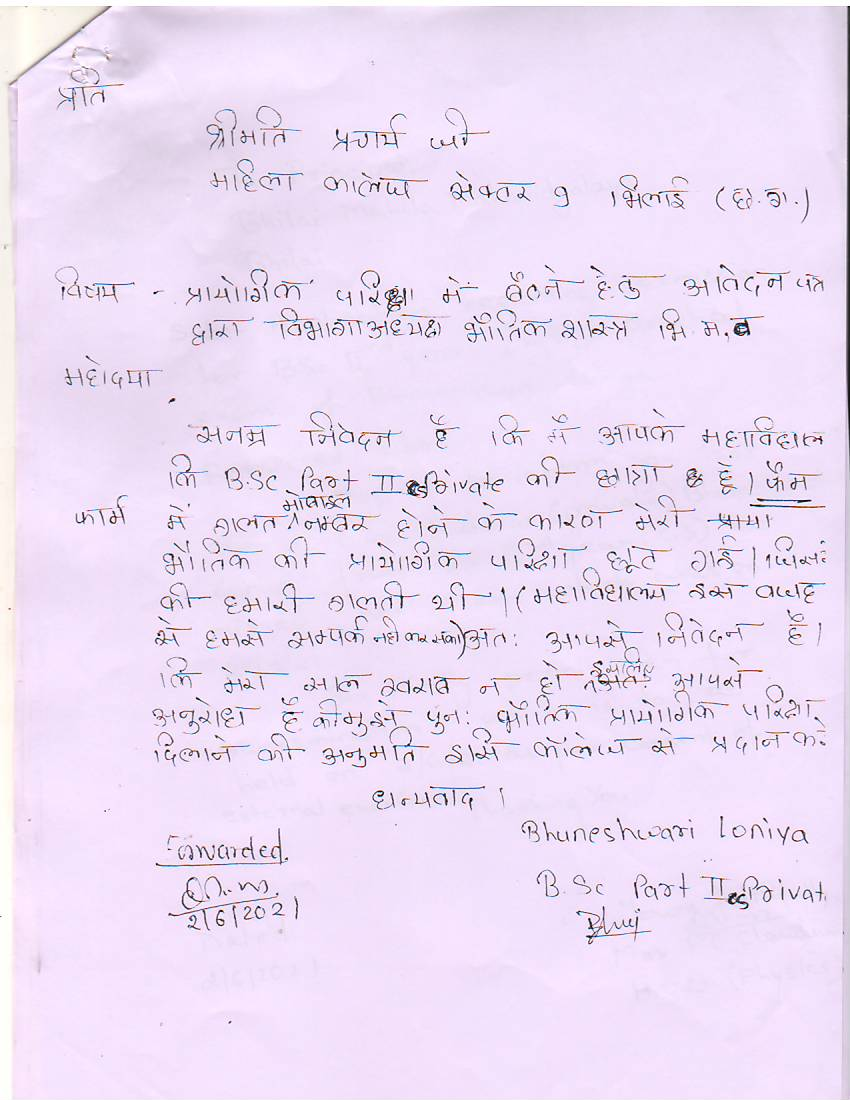 प्रति
श्रीमति प्राचार्य जी
महिला कालेज सेक्टर 9 भिलाई (छ.ग.)
विषय - प्रायोगिक परिक्षा में बैठने हेतु आवेदन पत्र
द्वारा विभागाअध्यक्ष भौतिक शास्त्र भि.म.
महोदया
सनम्र निवेदन है कि मैं आपके महाविद्यालय
कि B.Sc Part II CS Private की छात्रा हूँ। फॅाम
फार्म में गलत मोबाइल नम्बर होने के कारण मेरी प्राया
भौतिक की प्रायोगिक परिक्षा छूट गई। जिस
की हमारी गलती थी। (महाविद्यालय इस वजह
से हमसे सम्पर्क नही कर सका) अतः आपसे निवेदन है।
कि मेरा साल खराब न हो इसलिए अतः आपसे
अनुरोध है की मुझे पुनः भौतिक प्रायोगीक परिक्षा
दिलाने की अनुमति इसि कॉलेज से प्रदान करे
धन्यवाद।
Bhuneshwari Loniya
Forwarded.
B.Sc Part II CS Privat
2/6/2021
Bhuj